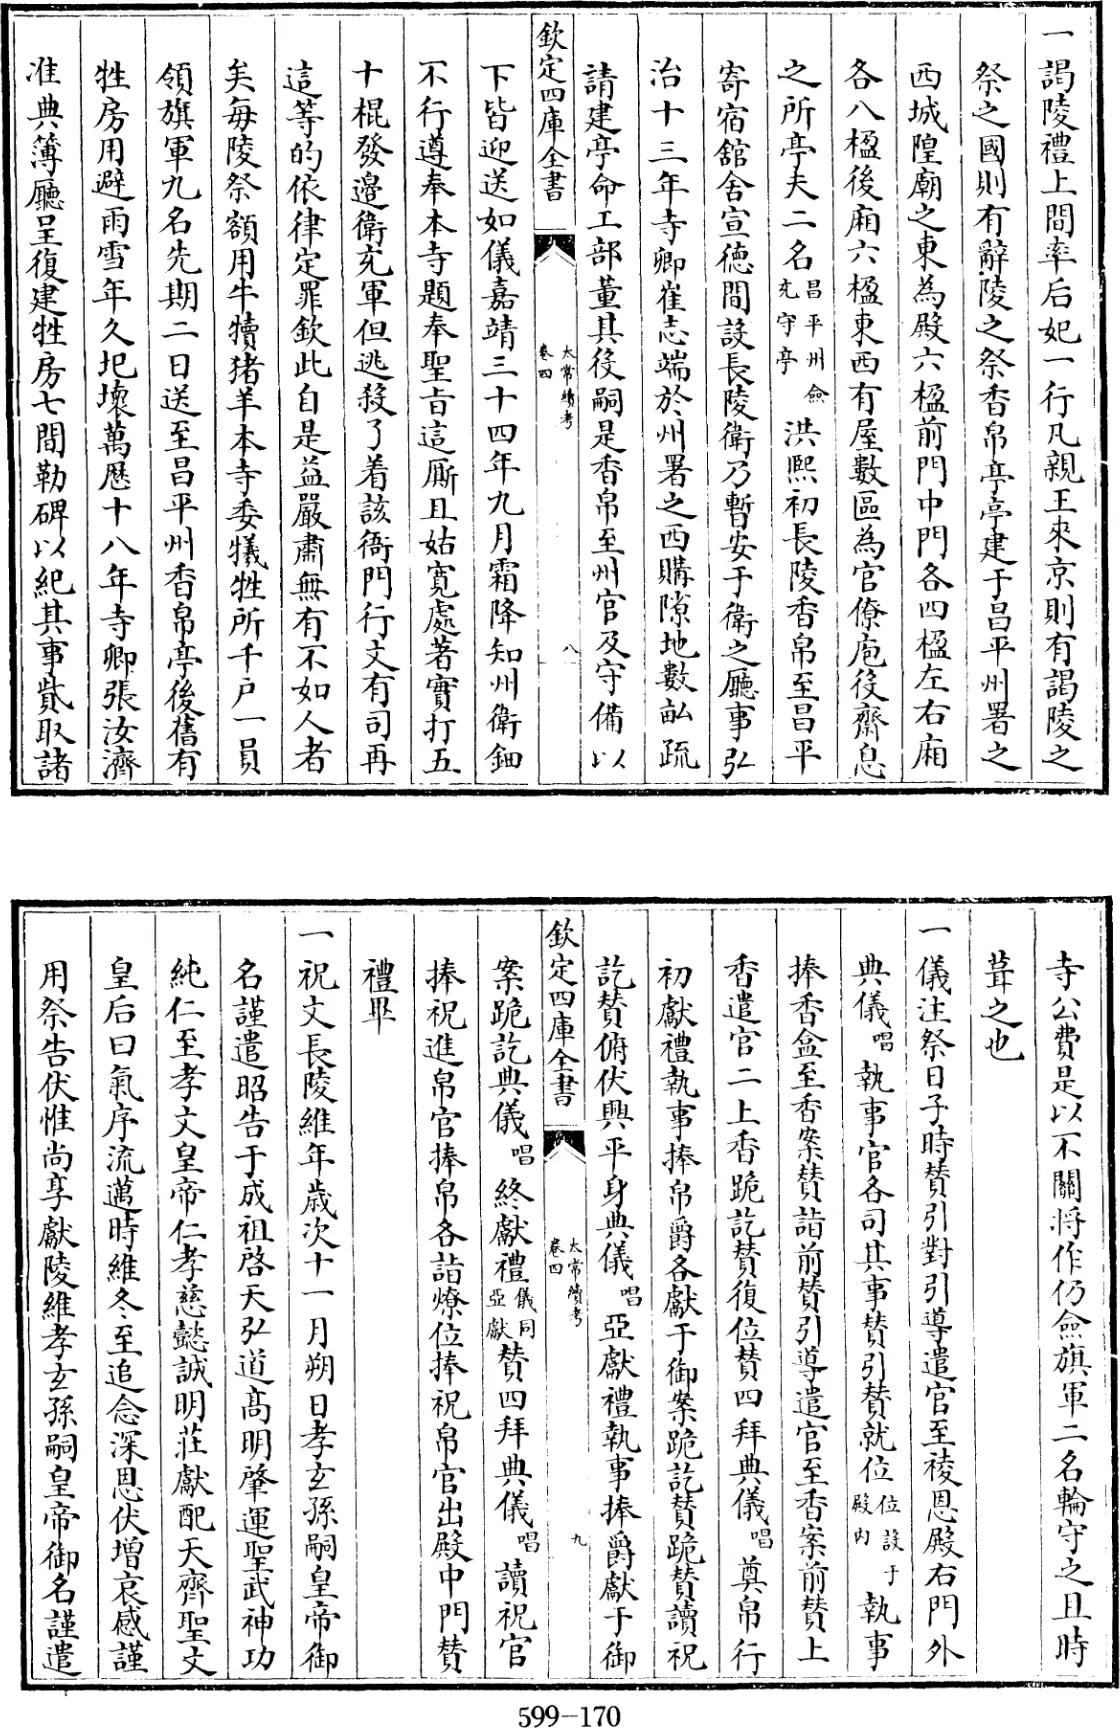 一謁陵禮上間率后妃一行凡親王來京則有謁陵之
祭之國則有辭陵之祭香帛亭亭建于昌平州署之
西城隍廟之東為殿六楹前門中門各四楹左右廂
各八楹後廂六楹東西有屋數區為官僚庖役齋息
之所亭夫二名昌平州僉充守亭洪熙初長陵香帛至昌平
寄宿舘舍宣德間設長陵衛乃暫安于衛之廳事弘
治十三年寺卿崔志端於州署之西購隙地數畝疏
請建亭命工部董其役嗣是香帛至州官及守備以
欽定四庫全書
太常續考
卷四
八
下皆迎送如儀嘉靖三十四年九月霜降知州衛鈿
不行遵奉本寺題奉聖旨這厮且姑寬處著實打五
十棍發邉衛充軍但逃殺了着該衙門行文有司再
這等的依律定罪欽此自是益嚴肅無有不如人者
矣每陵祭額用牛犢猪羊本寺委犧牲所千户一員
領旗軍九名先期二日送至昌平州香帛亭後舊有
牲房用避雨雪年久圯壞萬歴十八年寺卿張汝濟
准典簿廳呈復建牲房七間勒碑以紀其事貲取諸
寺公費是以不關將作仍僉旗軍二名輪守之且時
葺之也
一儀注祭日子時贊引對引導遣官至祾恩殿右門外
典儀唱執事官各司其事贊引贊就位位設于殿内執事
捧香盒至香案贊詣前贊引導遣官至香案前贊上
香遣官二上香跪訖贊復位贊四拜典儀唱奠帛行
初獻禮執事捧帛爵各獻于御案跪訖贊跪贊讀祝
訖贊俯伏興平身典儀唱亞獻禮執事捧爵獻于御
欽定四庫全書
太常續考
卷四
九
案跪訖典儀唱終獻禮儀同亞獻贊四拜典儀唱讀祝官
捧祝進帛官捧帛各詣燎位捧祝帛官出殿中門贊
禮畢
一祝文長陵維年歳次十一月朔日孝玄孫嗣皇帝御
名謹遣昭告于成祖啓天弘道髙明肇運聖武神功
純仁至孝文皇帝仁孝慈懿誠明莊獻配天齊聖文
皇后曰氣序流邁時維冬至追念深恩伏增哀感謹
用祭告伏惟尚享獻陵維孝玄孫嗣皇帝御名謹遣
599-170